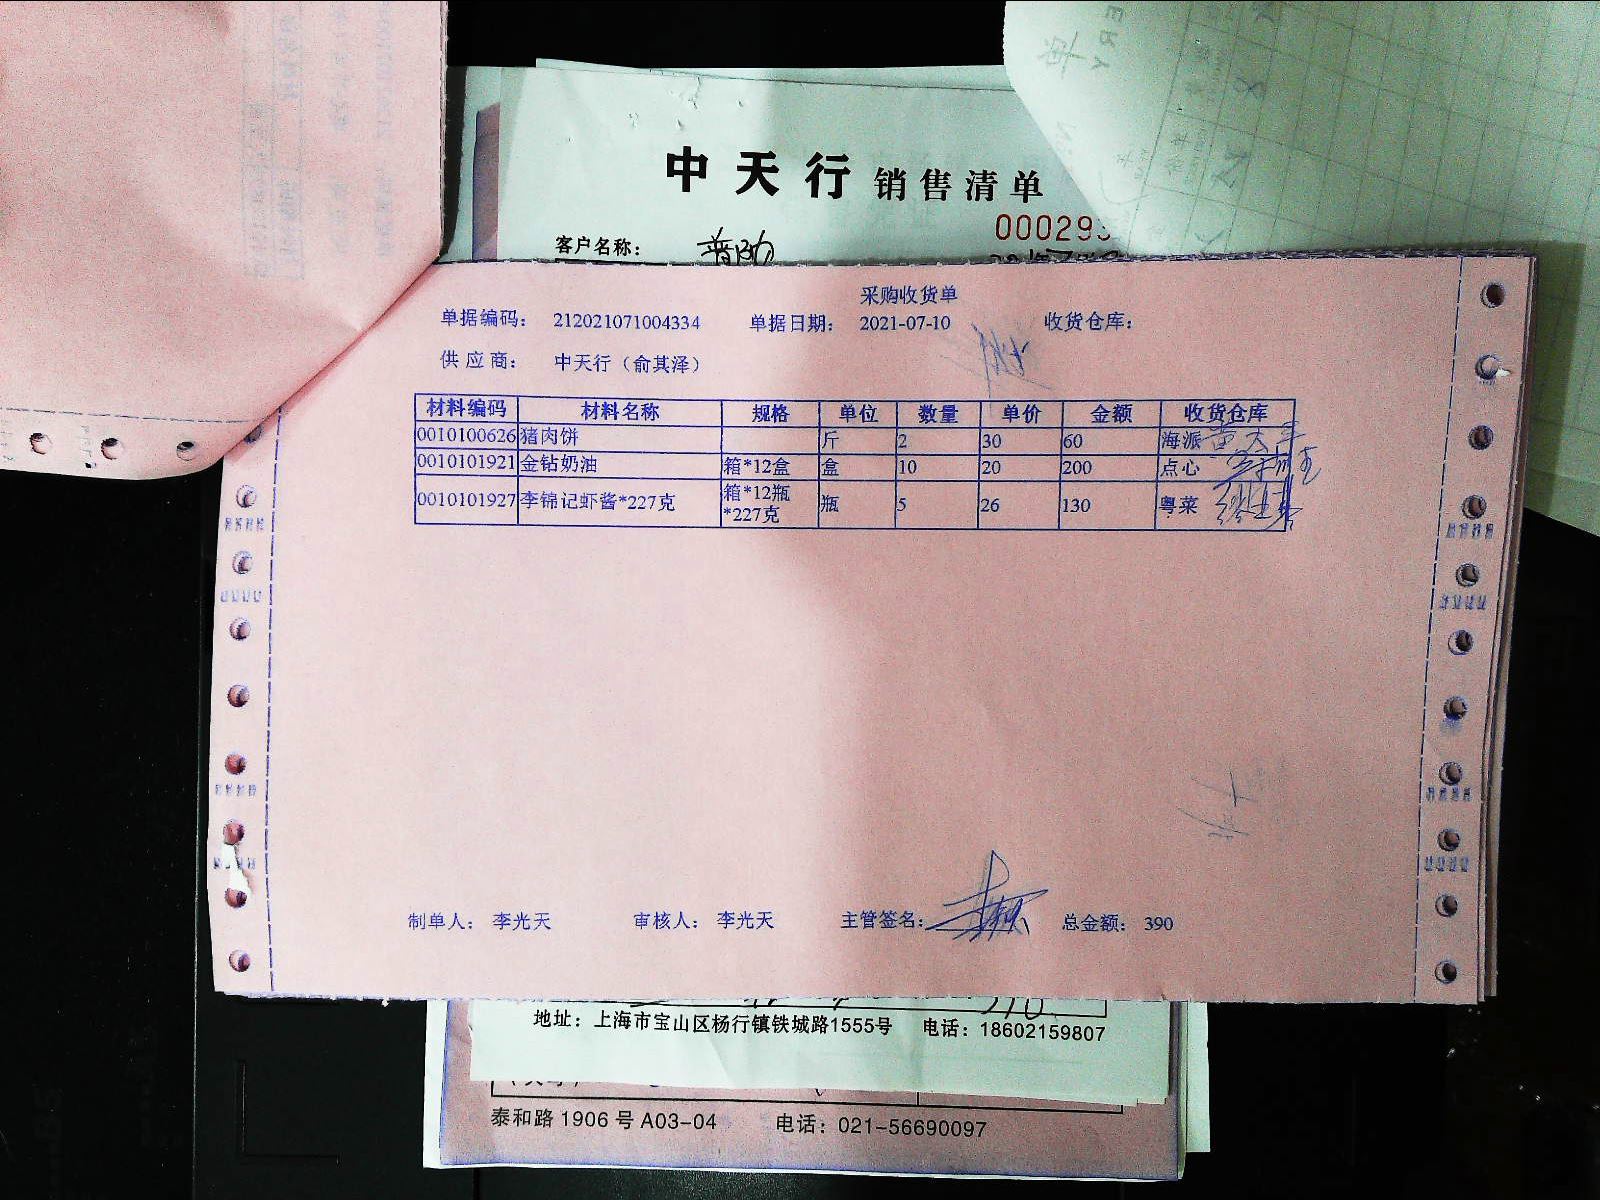 中天行 销售清单
000293
客户名称：
采购收货单
单据编码： 212021071004334 单据日期： 2021-07-10 收货仓库：
供应商： 中天行（俞其泽）
材料编码 材料名称 规格 单位 数量 单价 金额 收货仓库
0010100626 猪肉饼 斤 2 30 60 海派
0010101921 金钻奶油 箱*12盒 盒 10 20 200 点心
0010101927 李锦记虾酱*227克 箱*12瓶*227克 瓶 5 26 130 粤菜
制单人： 李光天 审核人： 李光天 主管签名： 总金额： 390
地址：上海市宝山区杨行镇铁城路1555号 电话：18602159807
泰和路 1906 号 A03-04 电话：021-56690097